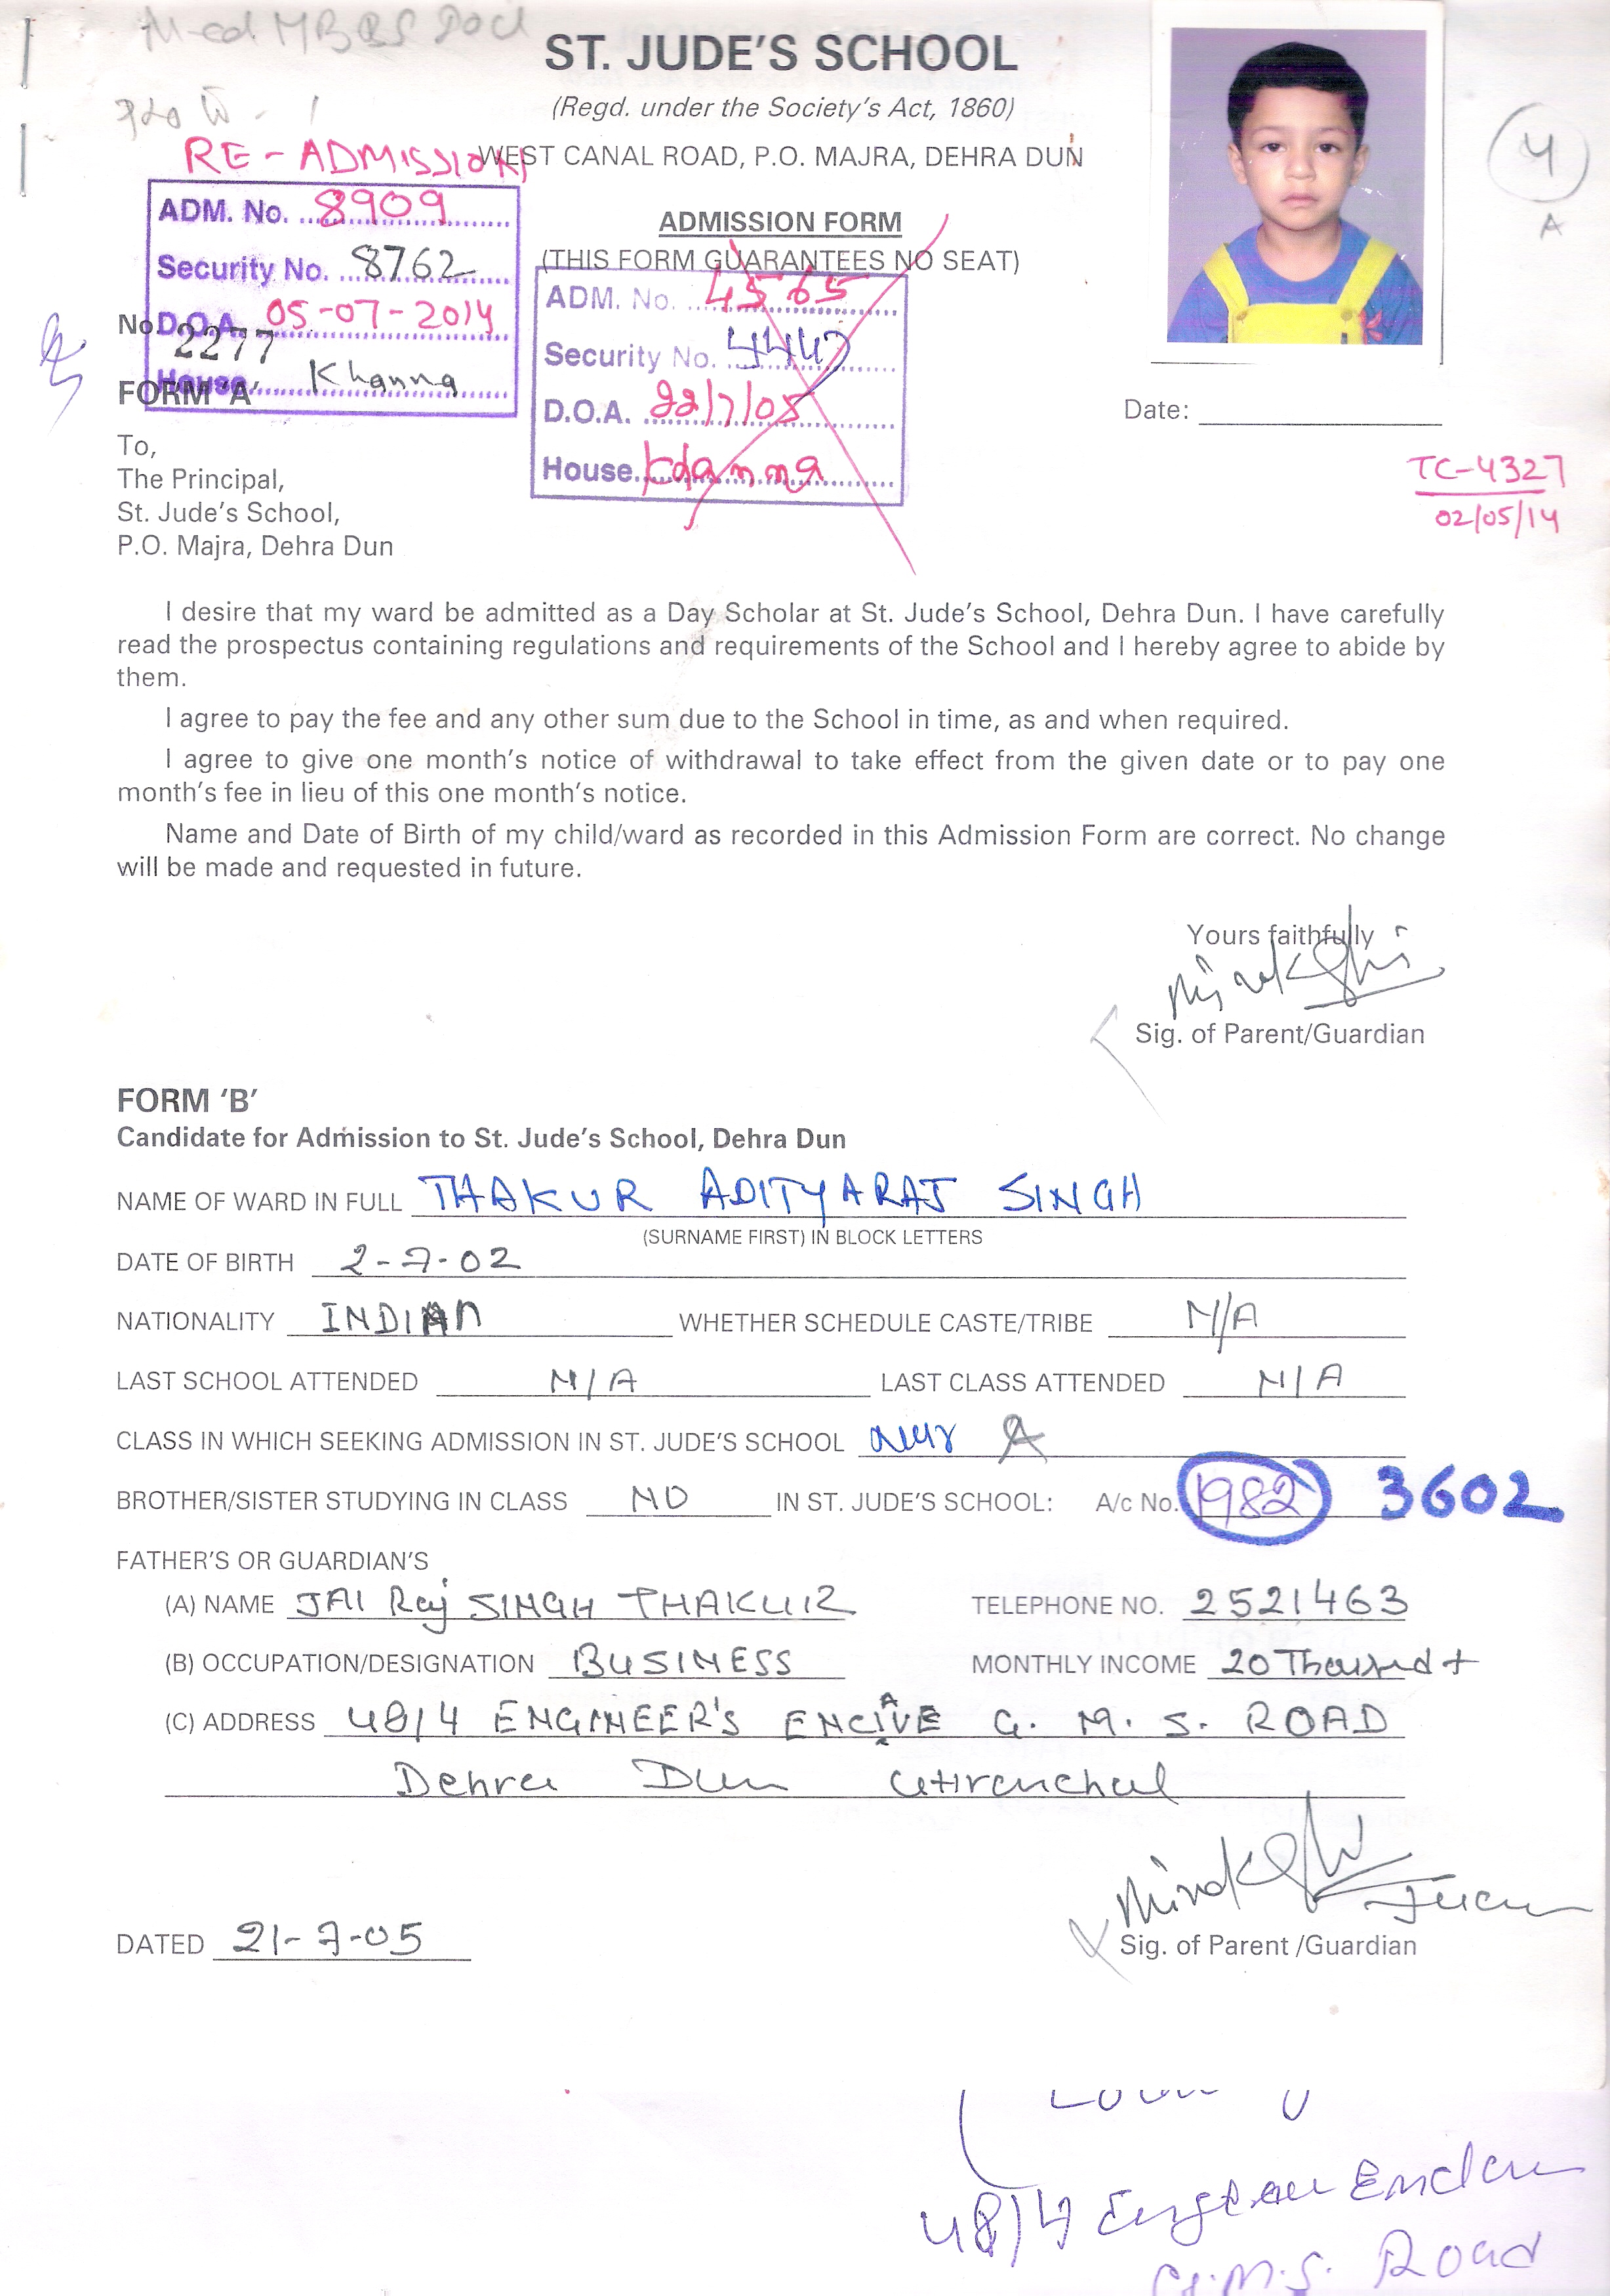 ST. JUDE'S SCHOOL
(Regd. under the Society's Act, 1860)
RE-ADMISSION
WEST CANAL ROAD, P.O. MAJRA, DEHRA DUN
4
A
ADM. No. 8909
Security No. 8762
D.O.A. 05-07-2014
House Khanna
ADMISSION FORM
(THIS FORM GUARANTEES NO SEAT)
ADM. No. 4565
Security No.
D.O.A. 22/7/05
House. Khanna
No. 2277
FORM 'A'
Date:
TC-4327
02/05/14
To,
The Principal,
St. Jude's School,
P.O. Majra, Dehra Dun
I desire that my ward be admitted as a Day Scholar at St. Jude's School, Dehra Dun. I have carefully
read the prospectus containing regulations and requirements of the School and I hereby agree to abide by
them.
I agree to pay the fee and any other sum due to the School in time, as and when required.
I agree to give one month's notice of withdrawal to take effect from the given date or to pay one
month's fee in lieu of this one month's notice.
Name and Date of Birth of my child/ward as recorded in this Admission Form are correct. No change
will be made and requested in future.
Yours faithfully
Sig. of Parent/Guardian
FORM 'B'
Candidate for Admission to St. Jude's School, Dehra Dun
NAME OF WARD IN FULL THAKUR ADITYARAJ SINGH
(SURNAME FIRST) IN BLOCK LETTERS
DATE OF BIRTH 2-7-02
NATIONALITY INDIAN WHETHER SCHEDULE CASTE/TRIBE N/A
LAST SCHOOL ATTENDED N/A LAST CLASS ATTENDED N/A
CLASS IN WHICH SEEKING ADMISSION IN ST. JUDE'S SCHOOL Nur A
BROTHER/SISTER STUDYING IN CLASS NO IN ST. JUDE'S SCHOOL: A/c No. 1982 3602
FATHER'S OR GUARDIAN'S
(A) NAME JAI Raj SINGH THAKUR TELEPHONE NO. 2521463
(B) OCCUPATION/DESIGNATION BUSINESS MONTHLY INCOME 20 Thousand +
(C) ADDRESS 48/4 ENGINEER'S ENCLAVE G. M. S. ROAD
Dehra Dun Uttranchal
DATED 21-7-05
Sig. of Parent /Guardian
48/4
G.M.S. Road